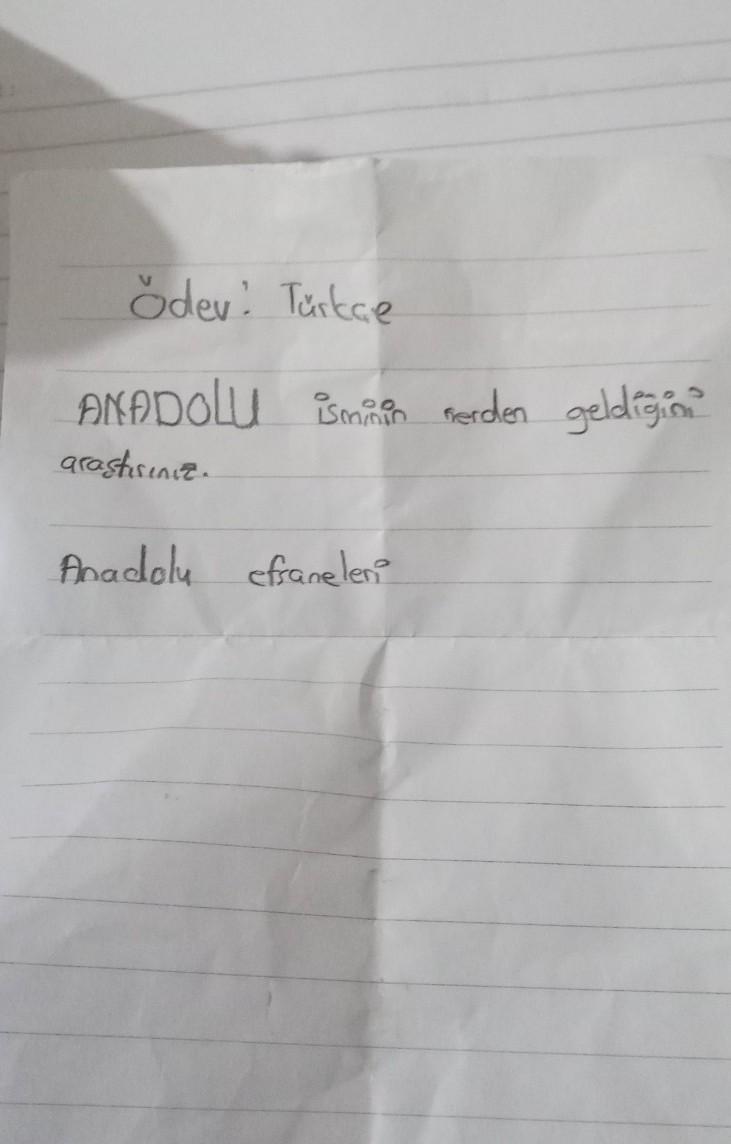 Ödev: Türkce
ANADOLU isminin nerden geldiğini
arastırınız.
Anadolu efsaneleri